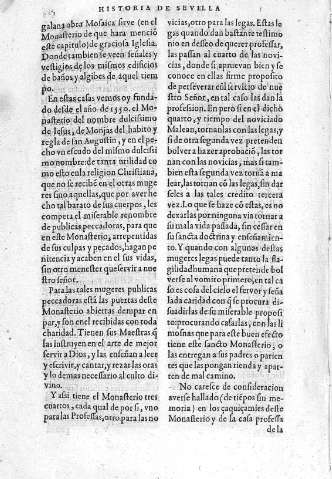 HISTORIA DE SEVILLA
galana obra Mosaica sirve (en el
Monasterio de que hara menciõ
este capitulo) de graciosa Iglesia.
Donde tambien se veen señales y
vestigios de los mismos edificios
de baños y algibes de aquel tiem
po.
En estas casas vemos ya funda-
do desde el año de 1550. el Mo-
nasterio del nombre dulcissimo
de Iesus, de Monjas del habito y
regla de san Augustin, y en el pe-
cho vn escudo del mismo dulcissi
mo nombre de tanta vtilidad co
mo esto cu la religion Christiana,
que no se recibē en el otras muge
res sino aquellas, que por aver he
cho tal barato de sus cuerpos, les
competa el miserable renombre
de publicas peccadoras, para que
en este Monasterio, arrepentidas
de sus culpas y pecados, hagan pe
nitencia y acaben en el sus vidas,
sin otro menester que servir a nue
stro señor.
Para las tales mugeres publicas
peccadoras està las puertas deste
Monasterio abiertas de par en
par, y son en el recibidas con toda
charidad. Tienen sus Maestras q̃
las instruyen en el arte de mejor
servir a Dios, y las enseñan a leer
y escrivir, y cantar, y rezar las oras
y lo demas necessario al culto di-
vino.
Y assi tiene el Monasterio tres
cuartos, cada qual de por si, vno
para las Professas, otro para las no
vicias, otro para las legas. Estas le
gas quando dan bastante testimo
nio en deseo de querer professar,
las passan al cuarto de las novi-
cias, donde si apruevan bien y se
conoce en ellas firme proposito
de perseverar en el servicio de nue
stro Señor, en tal caso les dan la
profession. Empero si en el dicho
quarto, y tiempo del noviciado
Malean, tornan las con las legas,
y si de otra segunda vez pretenden
bolver a hazer aprobaciõ, las tor
nan con las novicias, mas si tam-
bien esta segunda vez torna a ma
lear, las tornan cõ las legas, sin dar
seles a las tales credito tercera
vez. Lo que se haze cõ estas, es no
dexarlas por ninguna via tornar a
su mala vida passada, sin cessar en
su sancta doctrina y enseñamien-
to. Y quando con algunas destas
mugeres legas puede tanto la fla-
gilidad humana que pretende bol
ver se al vomito primero, en tal ca
so es cosa del cielo el fervor y sesa
lada caridad con q̃ se procura di-
suadirlas de su miserable proposi
to procurando casarlas, con las li
mosnas que para este buen efecto
tiene este sancto Monasterio, o
las entregan a sus padres o parien
tes que las pongan rienda y apar-
ten de mal camino.
No caresce de consideracion
averse hallado (de tiẽpos sin me-
moria) en los çaquiçamies deste
Monasterio y de la casa professa
de la